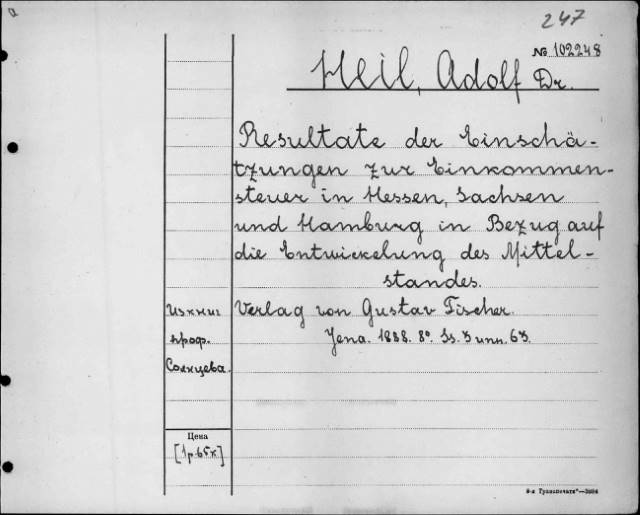 247
№ 102248
Heil, Adolf Dr.
Resultate der Einschä-
tzungen zur Einkommen-
steuer in Hessen, Sachsen
und Hamburg in Bezug auf
die Entwickelung des Mittel-
standes.
Verlag von Gustav Fischer.
Jena. 1888. 8°. Ss. 3 unn. 63.
Из книг
проф.
Солнцева.
Цена
[1 р. 65 к]